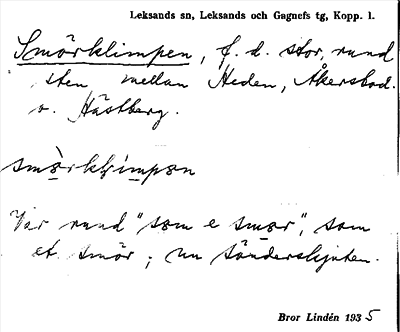 Leksands sn, Leksands och Gagnefs tg, Kopp. l.
Smörklimpen, f. d. stor, rund
sten mellan Heden, Åkerbod.
o. Hästberg.
smörkļimpən
Var rund "som e smør", som
et smör; nu sönderskjuten.
Bror Lindén 1935